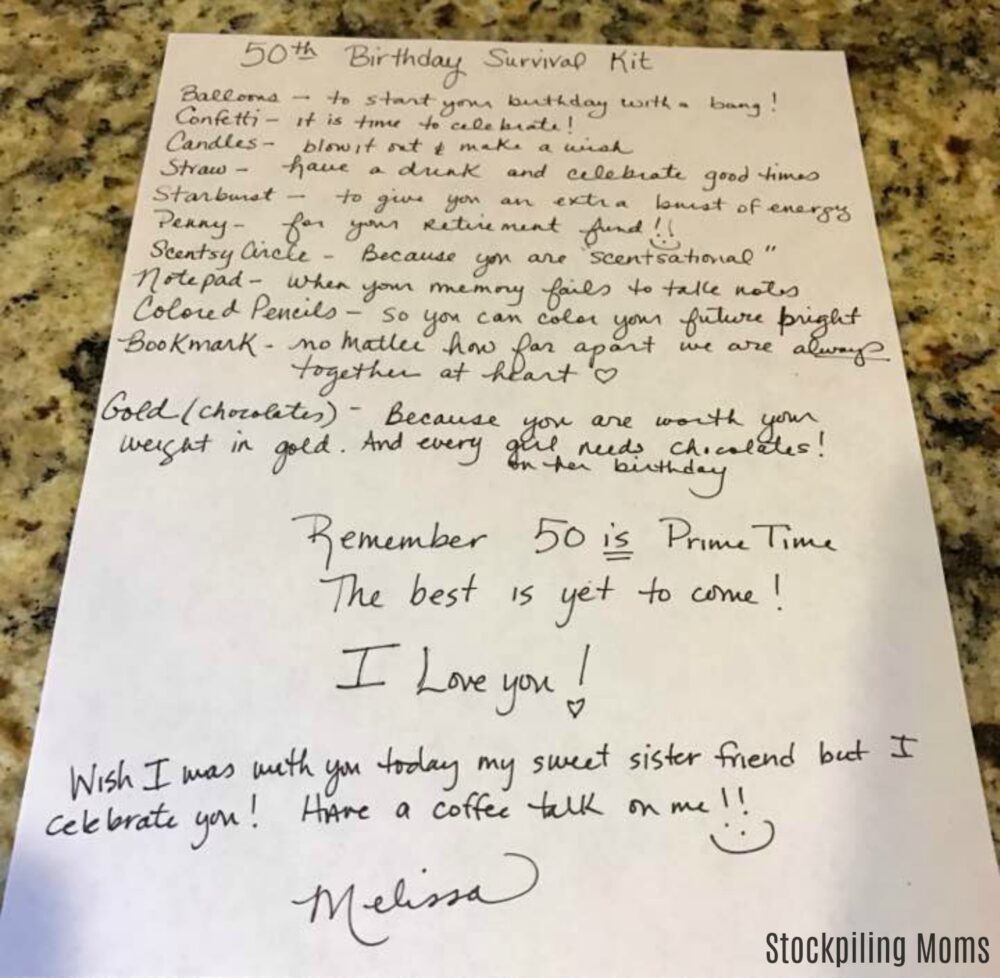 50th Birthday Survival Kit
Balloons – to start your birthday with a bang!
Confetti – it is time to celebrate!
Candles – blow it out & make a wish
Straw – have a drink and celebrate good times
Starburst – to give you an extra burst of energy
Penny – for your retirement fund!!
Scentsy Circle – Because you are "scentsational"
Notepad – when your memory fails to take notes
Colored Pencils – so you can color your future bright
Bookmark – no matter how far apart we are always
together at heart ♡
Gold (chocolates) – Because you are worth your
weight in gold. And every girl needs chocolates!
on her birthday
Remember 50 is Prime Time
The best is yet to come!
I Love you!
♡
Wish I was with you today my sweet sister friend but I
celebrate you! Have a coffee talk on me!!
Melissa
Stockpiling Moms